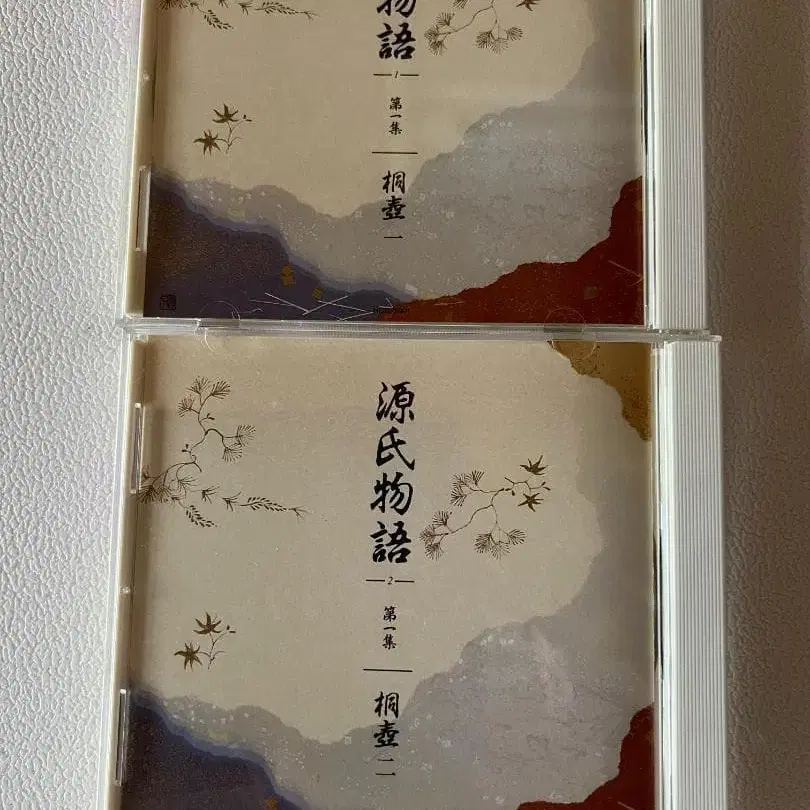 物語
1
第一集
桐壺
一
源氏物語
2
第一集
桐壺
二